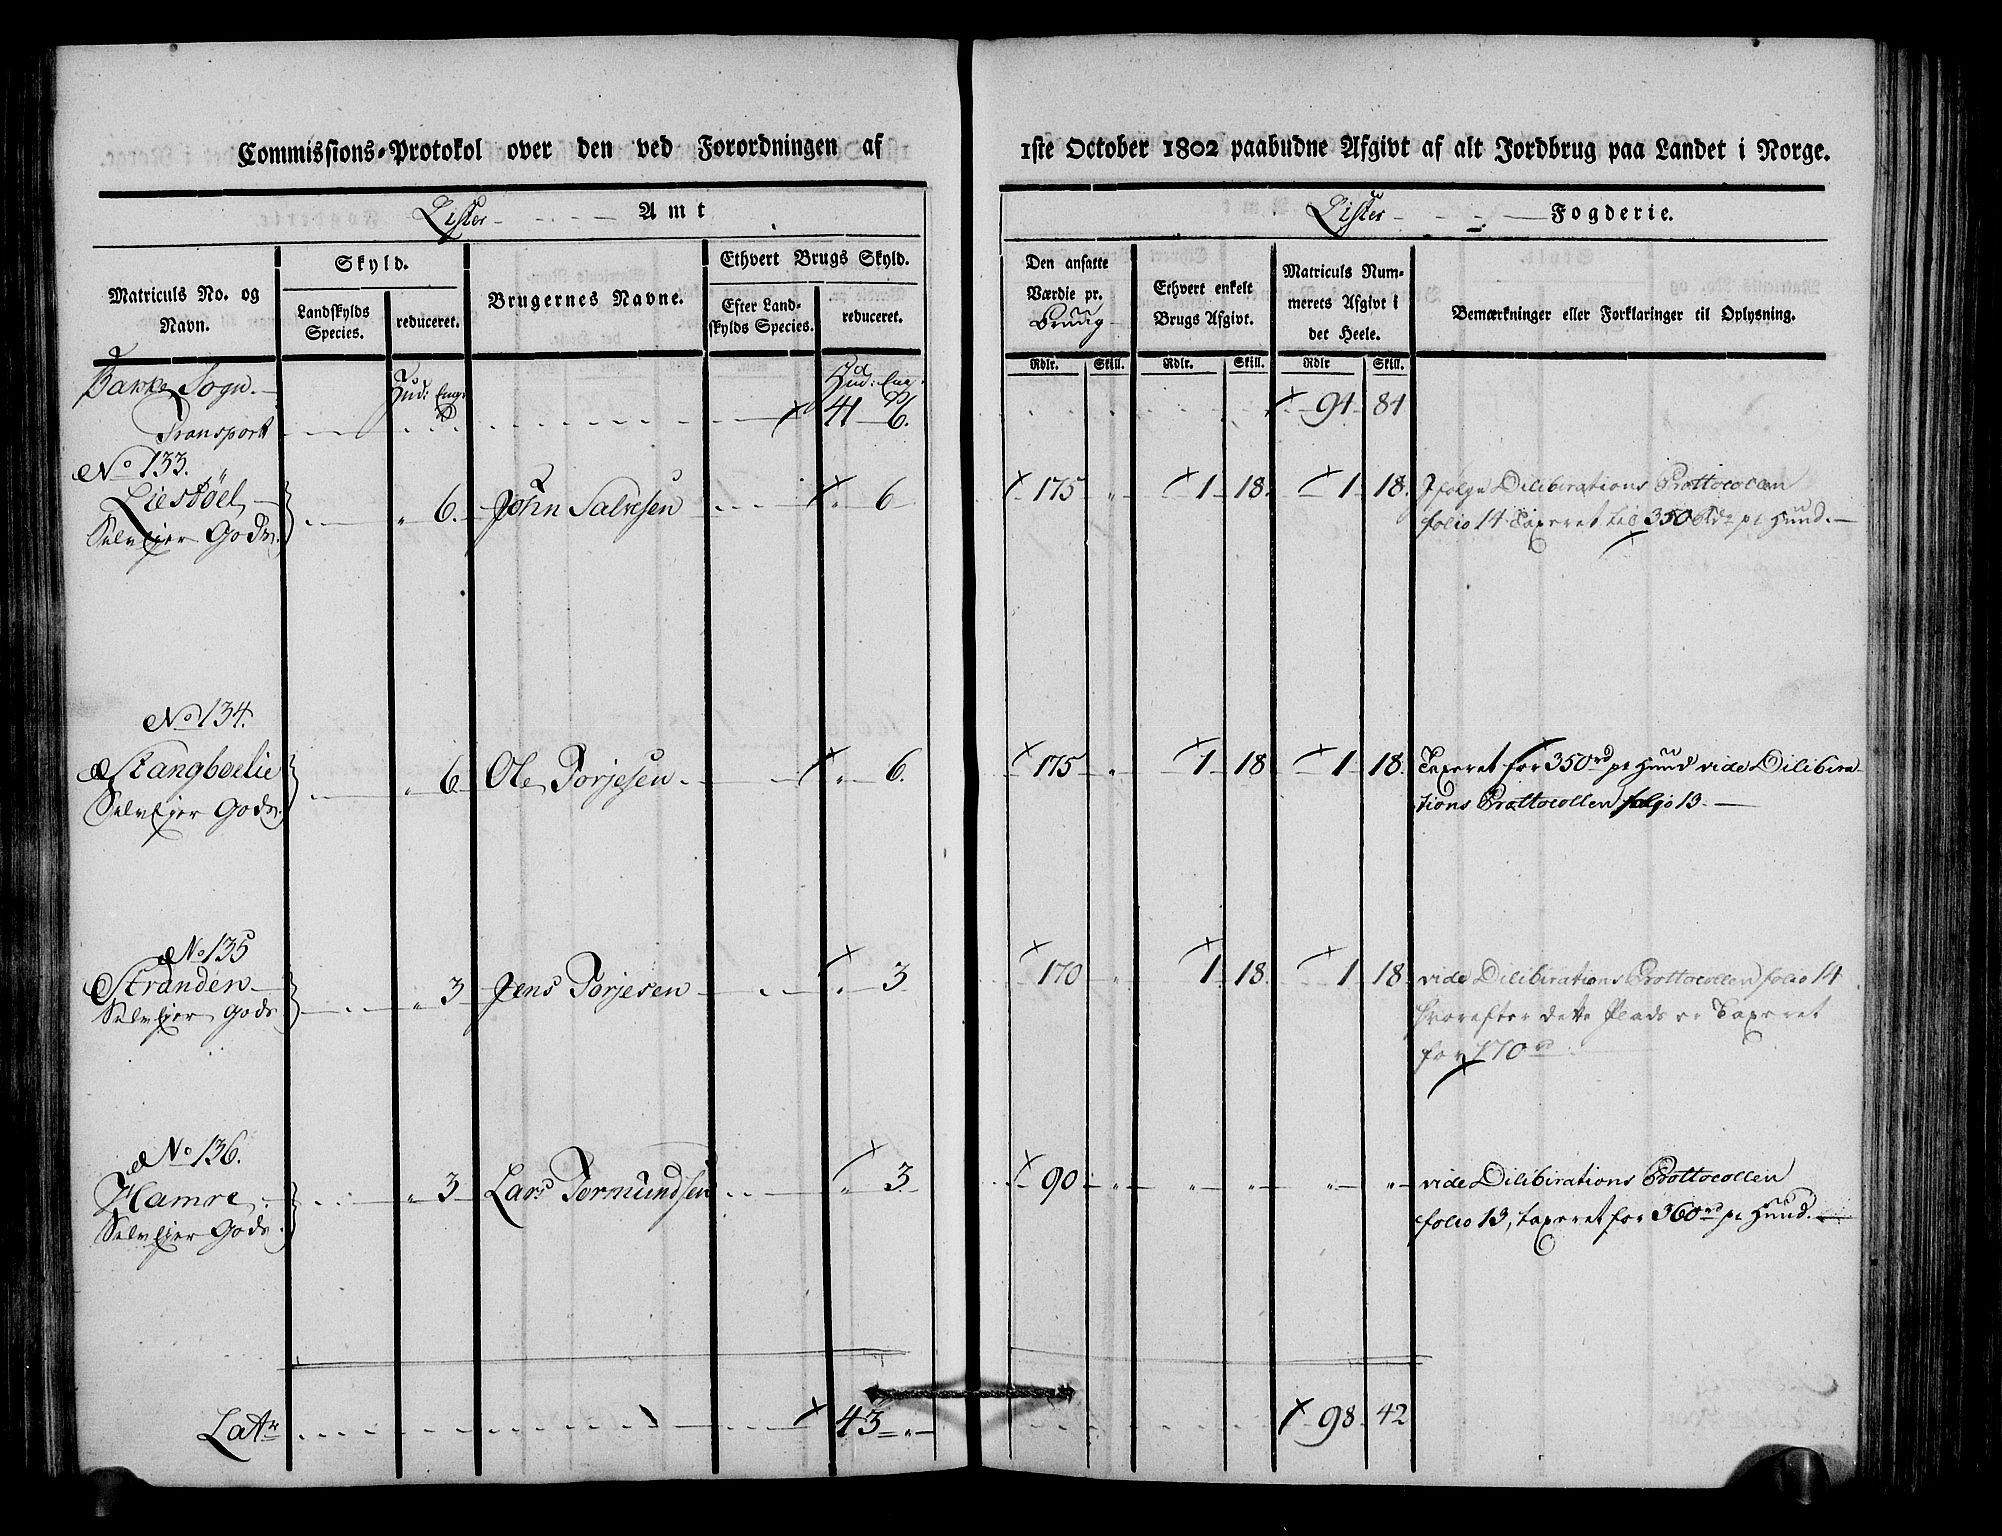 Commissions-Protokol over den ved Forordningen af
1ste October 1802 paabudne Afgivt af alt Jordbrug paa Landet i Norge.
Lister Amt
Lister Fogderie.
Matriculs No. og Navn.
Skyld.
Landskylds Species.
reduceret.
Brugernes Navne.
Ethvert Brugs Skyld.
Efter Landskylds Species.
reduceret.
Den ansatte Værdie pr. Brug
Ethvert enkelt Brugs Afgivt.
Matriculs Nummerets Afgivt i det Heele.
Bemærkninger eller Forklaringer til Oplysning.
Rdlr. Skill. Rdlr. Skill. Rdlr Skill.
Bakke Sogn. Hud: Eng: Hud: Eng:
Transport 41 6. 91 81
No 133.
Liestøel 6. John Salvesen 6 175 " 1 18. 1 18. Ifølge Dilibirations Prottocollen
Selveier Gods. folio 14 Taxeret til 350 rd pr Huud.
No 134.
Stangboelie 6 Ole Torjesen 6. 175 " 1 18 1 18. Taxeret for 350 rd pr Huud vide Dilibira
Selveier Gods. tions Prottocollen folio 13.
No 135
Stranden 3 Jens Torjesen 3 170 " 1 18. 1 18. vide Dilibirations Prottocollen folio 14
Selveier Gods hvorefter dette Plads er Taxeret
for 170 rd
No 136.
Hamre 3 Lars Tormundsen 3. 90 " " " " " vide Dilibirations Prottocollen
Selveier Gods. folio 13, taxeret for 360 rd pr Huud.
Latr 43 " 98 42